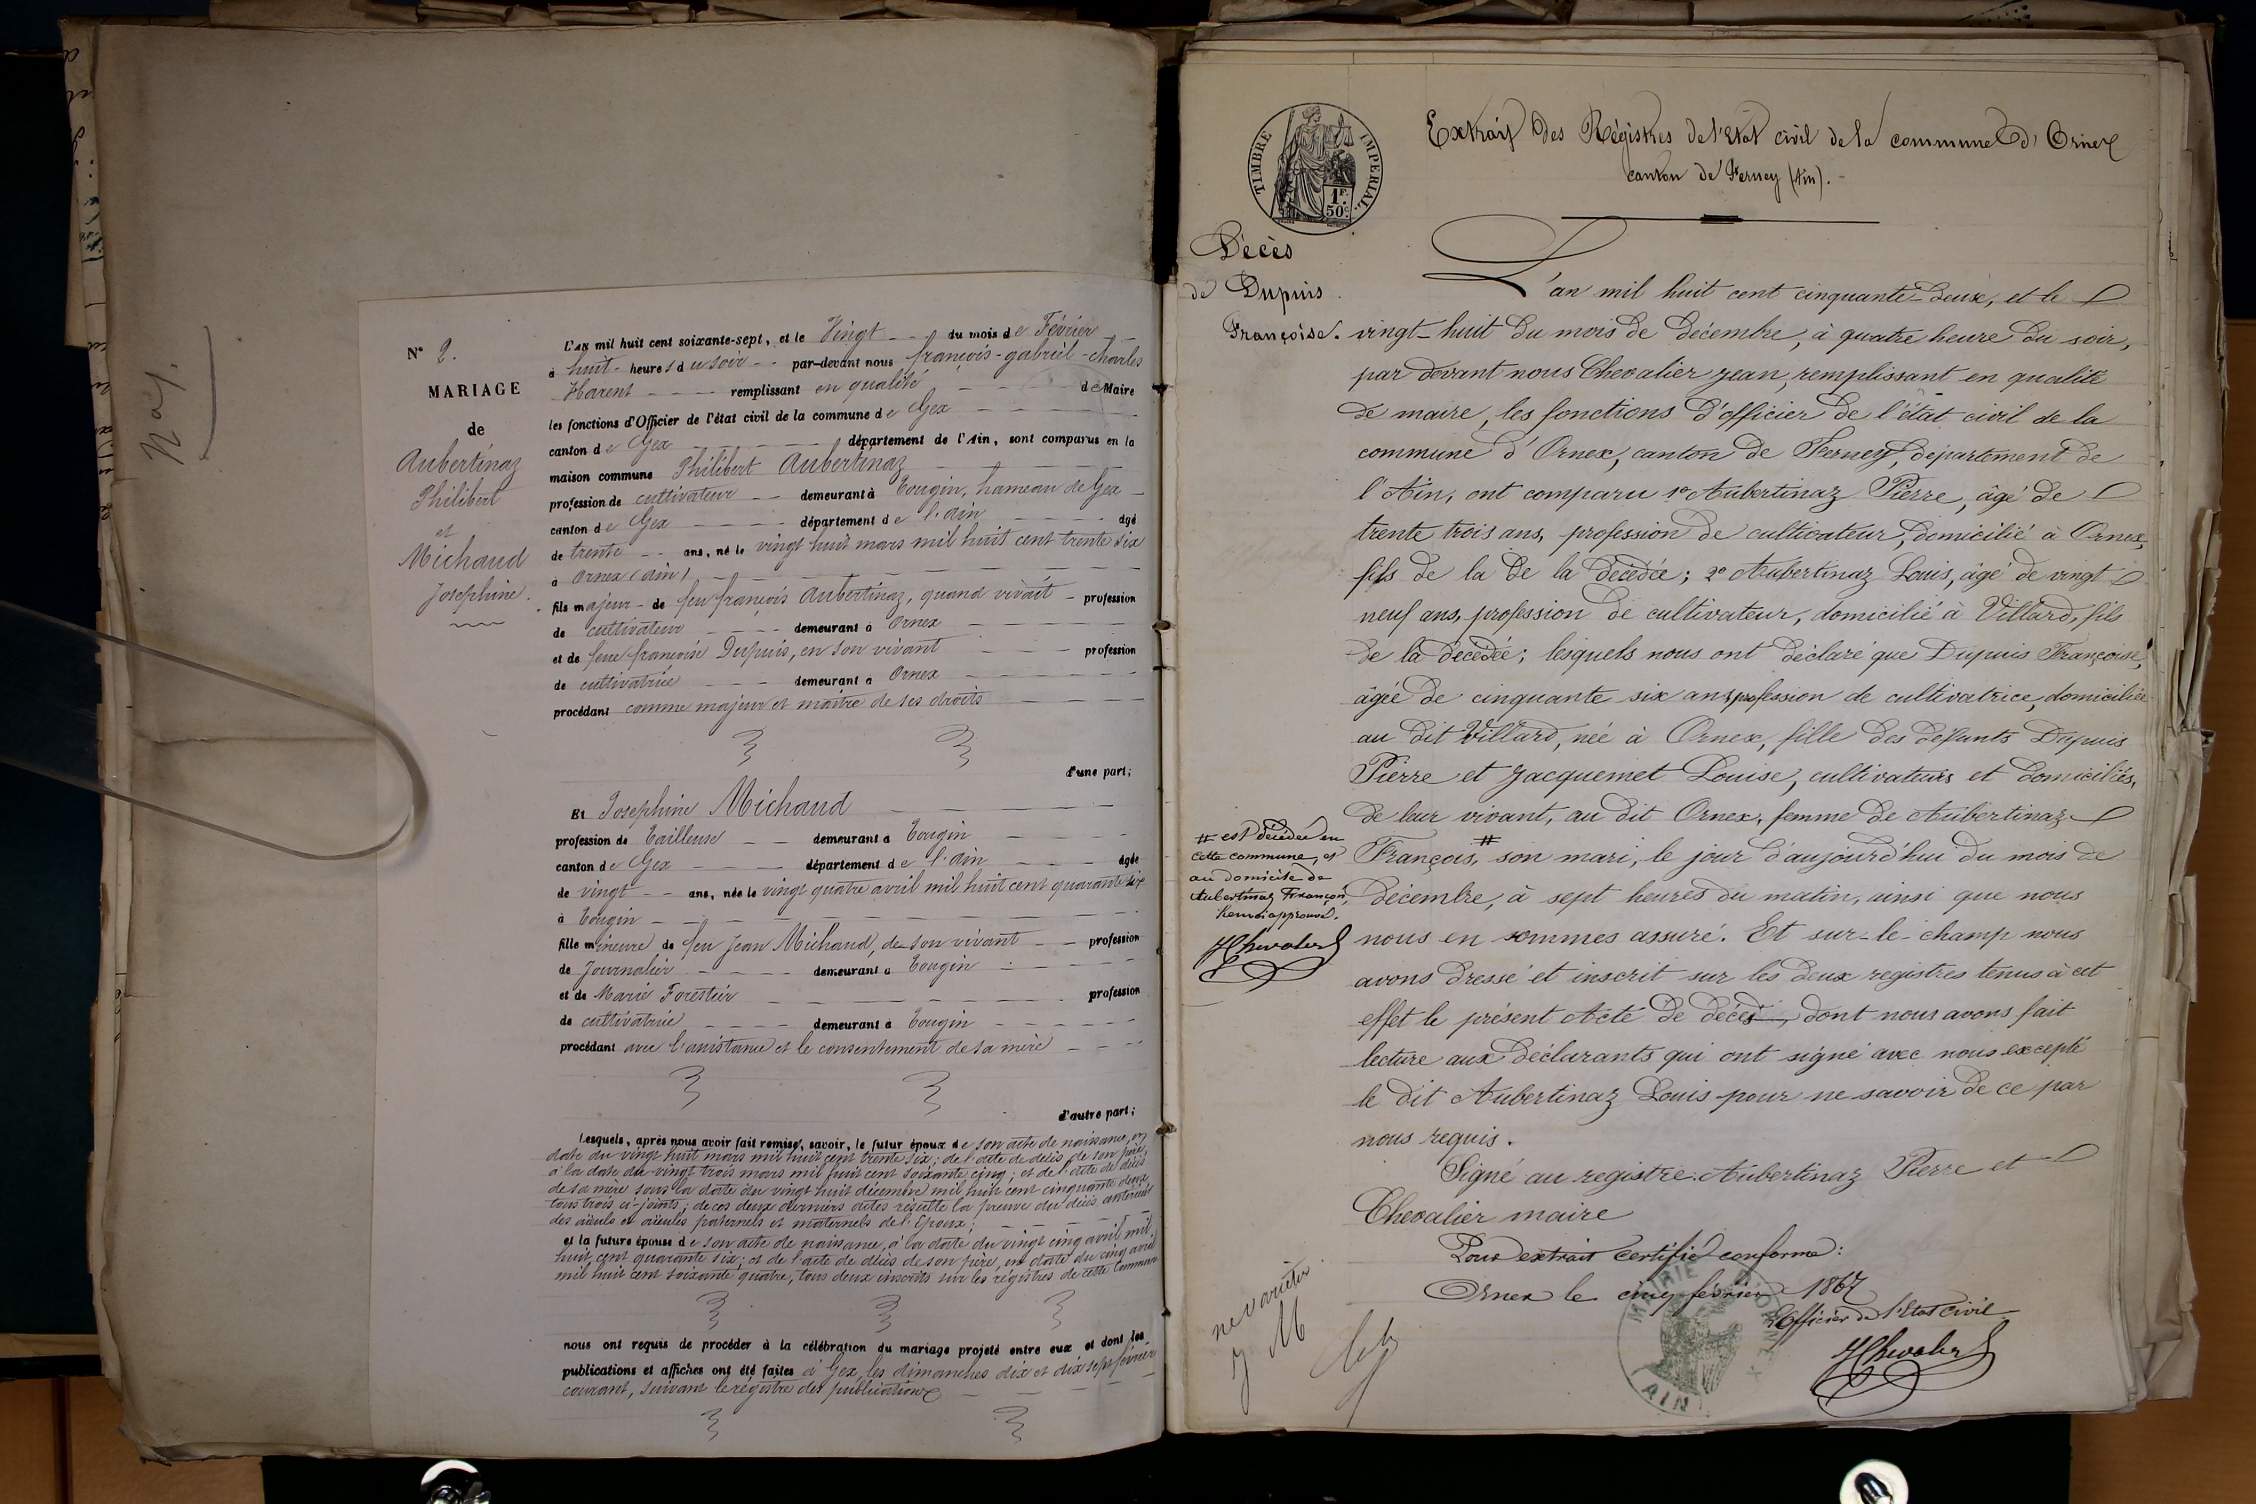 N° 2.
MARIAGE
de
Aubertinaz
Philibert
et
Michaud
Josephine.
L'an mil huit cent soixante-sept, et le Vingt du mois de Février
à huit heures du soir par-devant nous françois-gabriel-charles
Harent remplissant en qualité de Maire
les fonctions d'Officier de l'état civil de la commune de Gex
canton de Gex département de l'Ain, sont comparus en la
maison commune Philibert Aubertinaz
profession de cultivateur demeurant à Tougin, hameau de Gex
canton de Gex département de l'Ain âgé
de trente ans, né le vingt huit mars mil huit cent trente six
à Ornex (Ain)
fils majeur de feu françois Aubertinaz, quand vivait profession
de cultivateur demeurant à Ornex
et de feue françoise Dupuis, en son vivant profession
de cultivatrice demeurant à Ornex
procédant comme majeur et maître de ses droits
d'une part;
Et Josephine Michaud
profession de Tailleuse demeurant à Tougin
canton de Gex département de l'Ain âgée
de vingt ans, née le vingt quatre avril mil huit cent quarante six
à Tougin
fille mineure de feu Jean Michaud, de son vivant profession
de Journalier demeurant à Tougin
et de Marie Forestier profession
de cultivatrice demeurant à Tougin
procédant avec l'assistance et le consentement de sa mère
d'autre part;
Lesquels, après nous avoir fait remise, savoir, le futur époux de son acte de naissance, en
date du vingt huit mars mil huit cent trente six; de l'acte de décès de son père,
à la date du vingt trois mars mil huit cent soixante cinq; et de l'acte de décès
de sa mère sous la date du vingt huit décembre mil huit cent cinquante deux
tous trois ci-joints; de ces deux derniers actes résulte la preuve du décès antérieur
des aïeuls et aïeules paternels et maternels de l'Epoux;
et la future épouse de son acte de naissance, à la date du vingt cinq avril mil
huit cent quarante six; et de l'acte de décès de son père, en date du cinq avril
mil huit cent soixante quatre, tous deux inscrits sur les régistres de cette Commune
nous ont requis de procéder à la célébration du mariage projeté entre eux et dont les
publications et affiches ont été faites à Gex, les dimanches dix et dix sept février
courant, suivant le régistre des publications
TIMBRE IMPERIAL.
1F.
50c.
Extrait des Régistres de l'Etat civil de la commune d'Ornex
canton de Ferney (Ain).
Décès
de Dupuis
Françoise.
L'an mil huit cent cinquante-deux, et le
vingt-huit du mois de décembre, à quatre heure du soir,
par devant nous Chevalier Jean, remplissant en qualité
de maire, les fonctions d'officier de l'état civil de la
commune d'Ornex, canton de Ferney, département de
l'Ain, ont comparu 1° Aubertinaz Pierre, âgé de
trente trois ans, profession de cultivateur, domicilié à Ornex,
fils de la de la décédée; 2° Aubertinaz Louis, âgé de vingt
neuf ans, profession de cultivateur, domicilié à Villard, fils
de la décédée; lesquels nous ont déclaré que Dupuis Françoise,
âgée de cinquante six ans, profession de cultivatrice, domiciliée
au dit Villard, née à Ornex, fille des défunts Dupuis
Pierre et Jacquemet Louise, cultivateurs et domiciliés,
de leur vivant, au dit Ornex, femme de Aubertinaz
François, # son mari, le jour d'aujourd'hui du mois de
décembre, à sept heures du matin, ainsi que nous
nous en sommes assuré. Et sur-le-champ nous
avons dressé et inscrit sur les deux registres tenus à cet
effet le présent Acte de décès, dont nous avons fait
lecture aux déclarants qui ont signé avec nous excepté
le dit Aubertinaz Louis pour ne savoir de ce par
nous requis.
Signé au registre: Aubertinaz Pierre et
Chevalier maire
# est décédée en
cette commune, et
au domicile de
Aubertinaz François,
Renvoi approuvé.
JChevalier
Pour extrait certifié conforme:
Ornex le cinq février 1867
L'officier de l'Etat civil
JChevalier
MAIRIE D'ORNEX
AIN
ne varietur